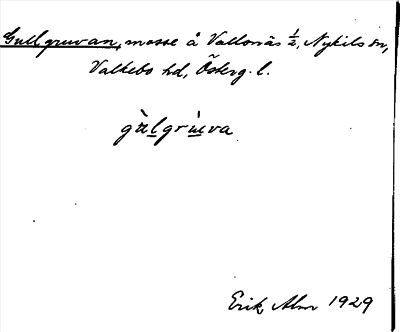 Gullgruvan, mosse å Vallonäs ½, Nykils sn,
Valkebo hd, Österg. l.
gu̇lgru̇va
Erik Alm 1929